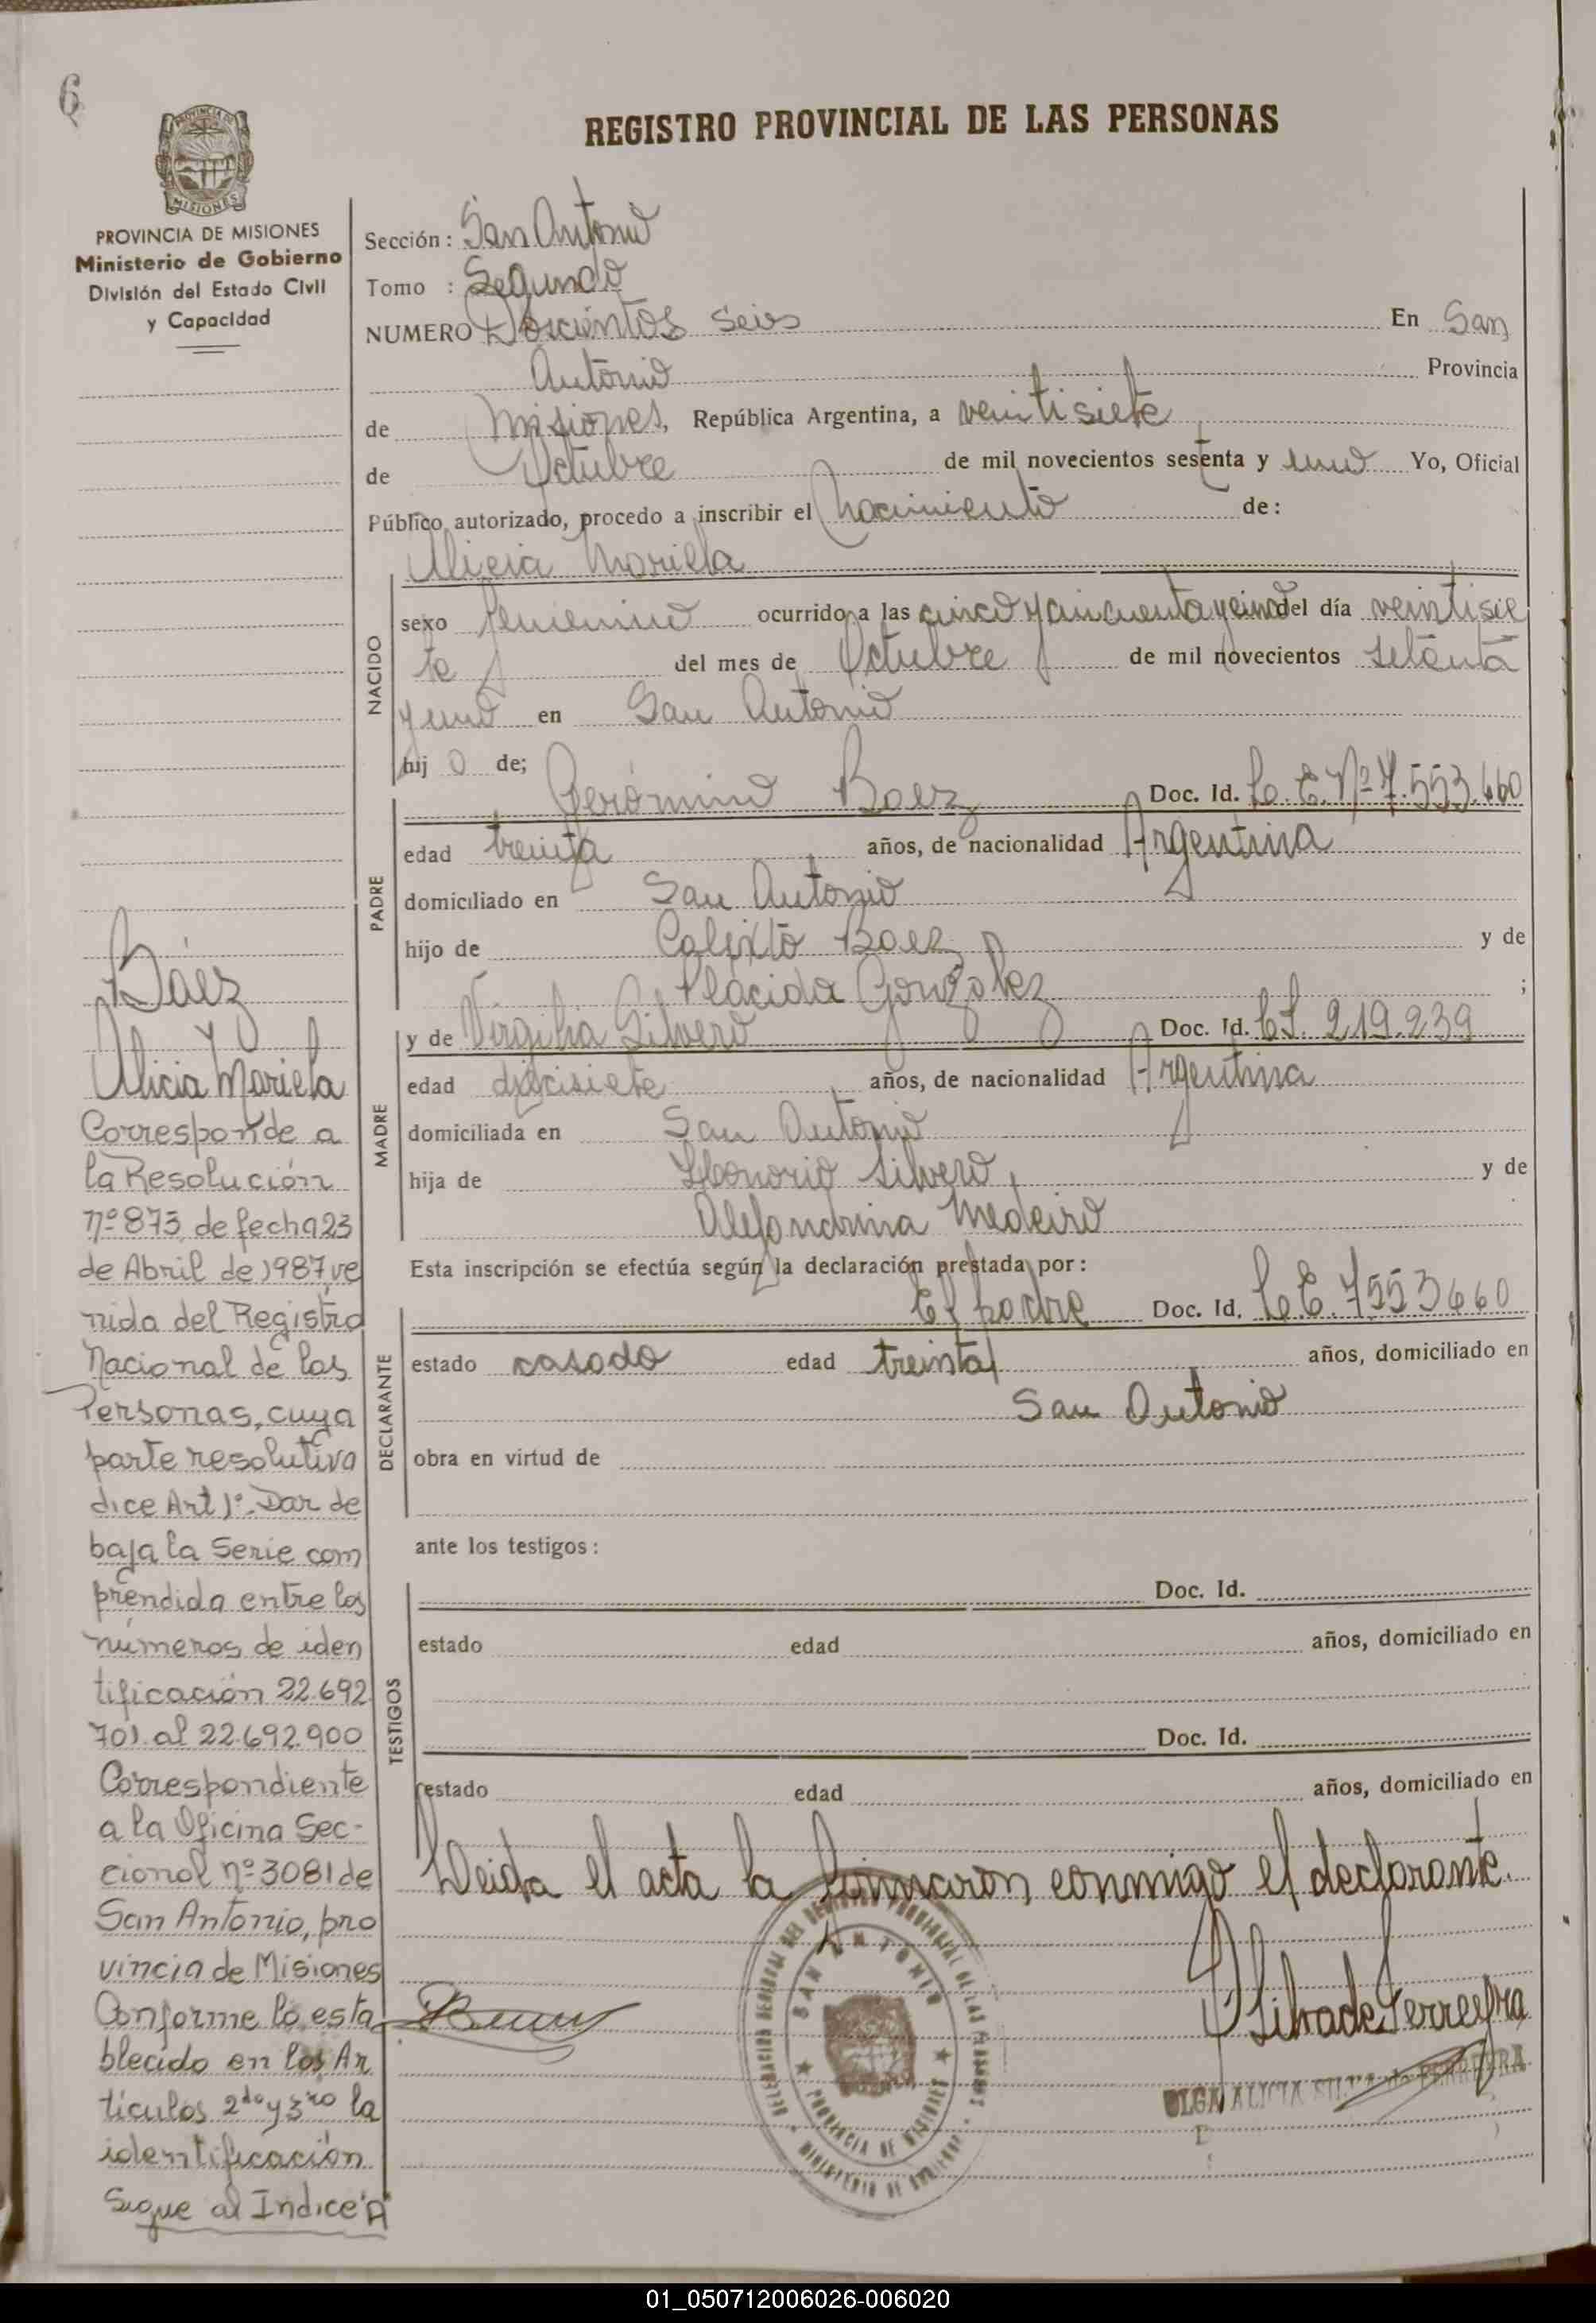 6
REGISTRO PROVINCIAL DE LAS PERSONAS
PROVINCIA DE MISIONES
Ministerio de Gobierno
División del Estado Civil
y Capacidad
Sección: San Antonio
Tomo : Segundo
NUMERO Doscientos seis En San
Antonio Provincia
de Misiones, República Argentina, a veintisiete
de Octubre de mil novecientos sesenta y uno Yo, Oficial
Público autorizado, procedo a inscribir el Nacimiento de:
Alicia Mariela
NACIDO
sexo femenino ocurrido a las cinco y cincuenta y cinco del día veintisie
te del mes de Octubre de mil novecientos setenta
y uno en San Antonio
hij a de;
PADRE
Gerónimo Baez Doc. Id. L.E. Nº 7.553.660
edad treinta años, de nacionalidad Argentina
domiciliado en San Antonio
hijo de Calixto Baez y de
Plácida González ;
MADRE
y de Virgilia Silvero Doc. Id. C.I. 219.239
edad diecisiete años, de nacionalidad Argentina
domiciliada en San Antonio
hija de Honorio Silvero, y de
Alejandrina Medeiro
Esta inscripción se efectúa según la declaración prestada por:
DECLARANTE
El padre Doc. Id. L.E. 7553660
estado casado edad treinta años, domiciliado en
San Antonio
obra en virtud de
ante los testigos:
TESTIGOS
Doc. Id.
estado edad años, domiciliado en
Doc. Id.
estado edad años, domiciliado en
Leida el acta la firmaron conmigo el declarante.
Báez
Alicia Mariela
Corresponde a
la Resolución
nº 873, de fecha 23
de Abril de 1987 ve
nida del Registro
Nacional de las
Personas, cuya
parte resolutiva
dice Art 1º. Dar de
baja la Serie com
prendida entre los
números de iden
tificación 22.692
701 al 22.692.900
Correspondiente
a la Oficina Sec-
cional nº 3081 de
San Antonio, pro
vincia de Misiones
Conforme lo esta
blecido en los Ar
tículos 2do y 3ro la
identificación
Sigue al Indice "A"
SAN ANTONIO
PROVINCIA DE MISIONES
OLGA ALICIA SILVA de FERREYRA
01_050712006026-006020